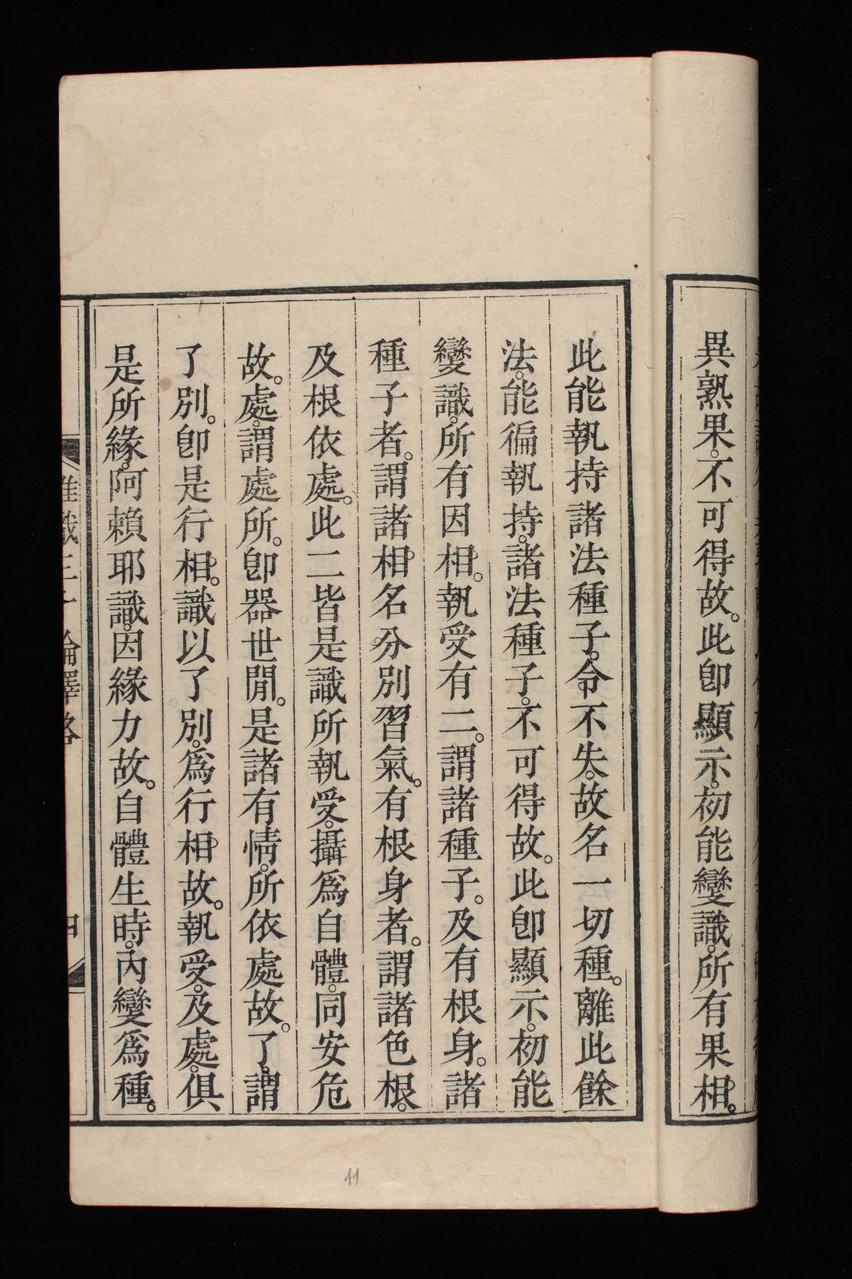 異熟果。不可得故。此卽顯示。初能變識。所有果相。
此能執持諸法種子。令不失。故名一切種。離此餘
法。能徧執持。諸法種子。不可得故。此卽顯示。初能
變識。所有因相。執受有二。謂諸種子。及有根身。諸
種子者。謂諸相名分別習氣。有根身者。謂諸色根。
及根依處。此二皆是識所執受。攝爲自體。同安危
故。處。謂處所。卽器世閒。是諸有情。所依處故。了。謂
了別。卽是行相。識以了別。爲行相故。執受。及處。俱
是所緣。阿賴耶識。因緣力故。自體生時。內變爲種。
唯識三十論釋略
四
11